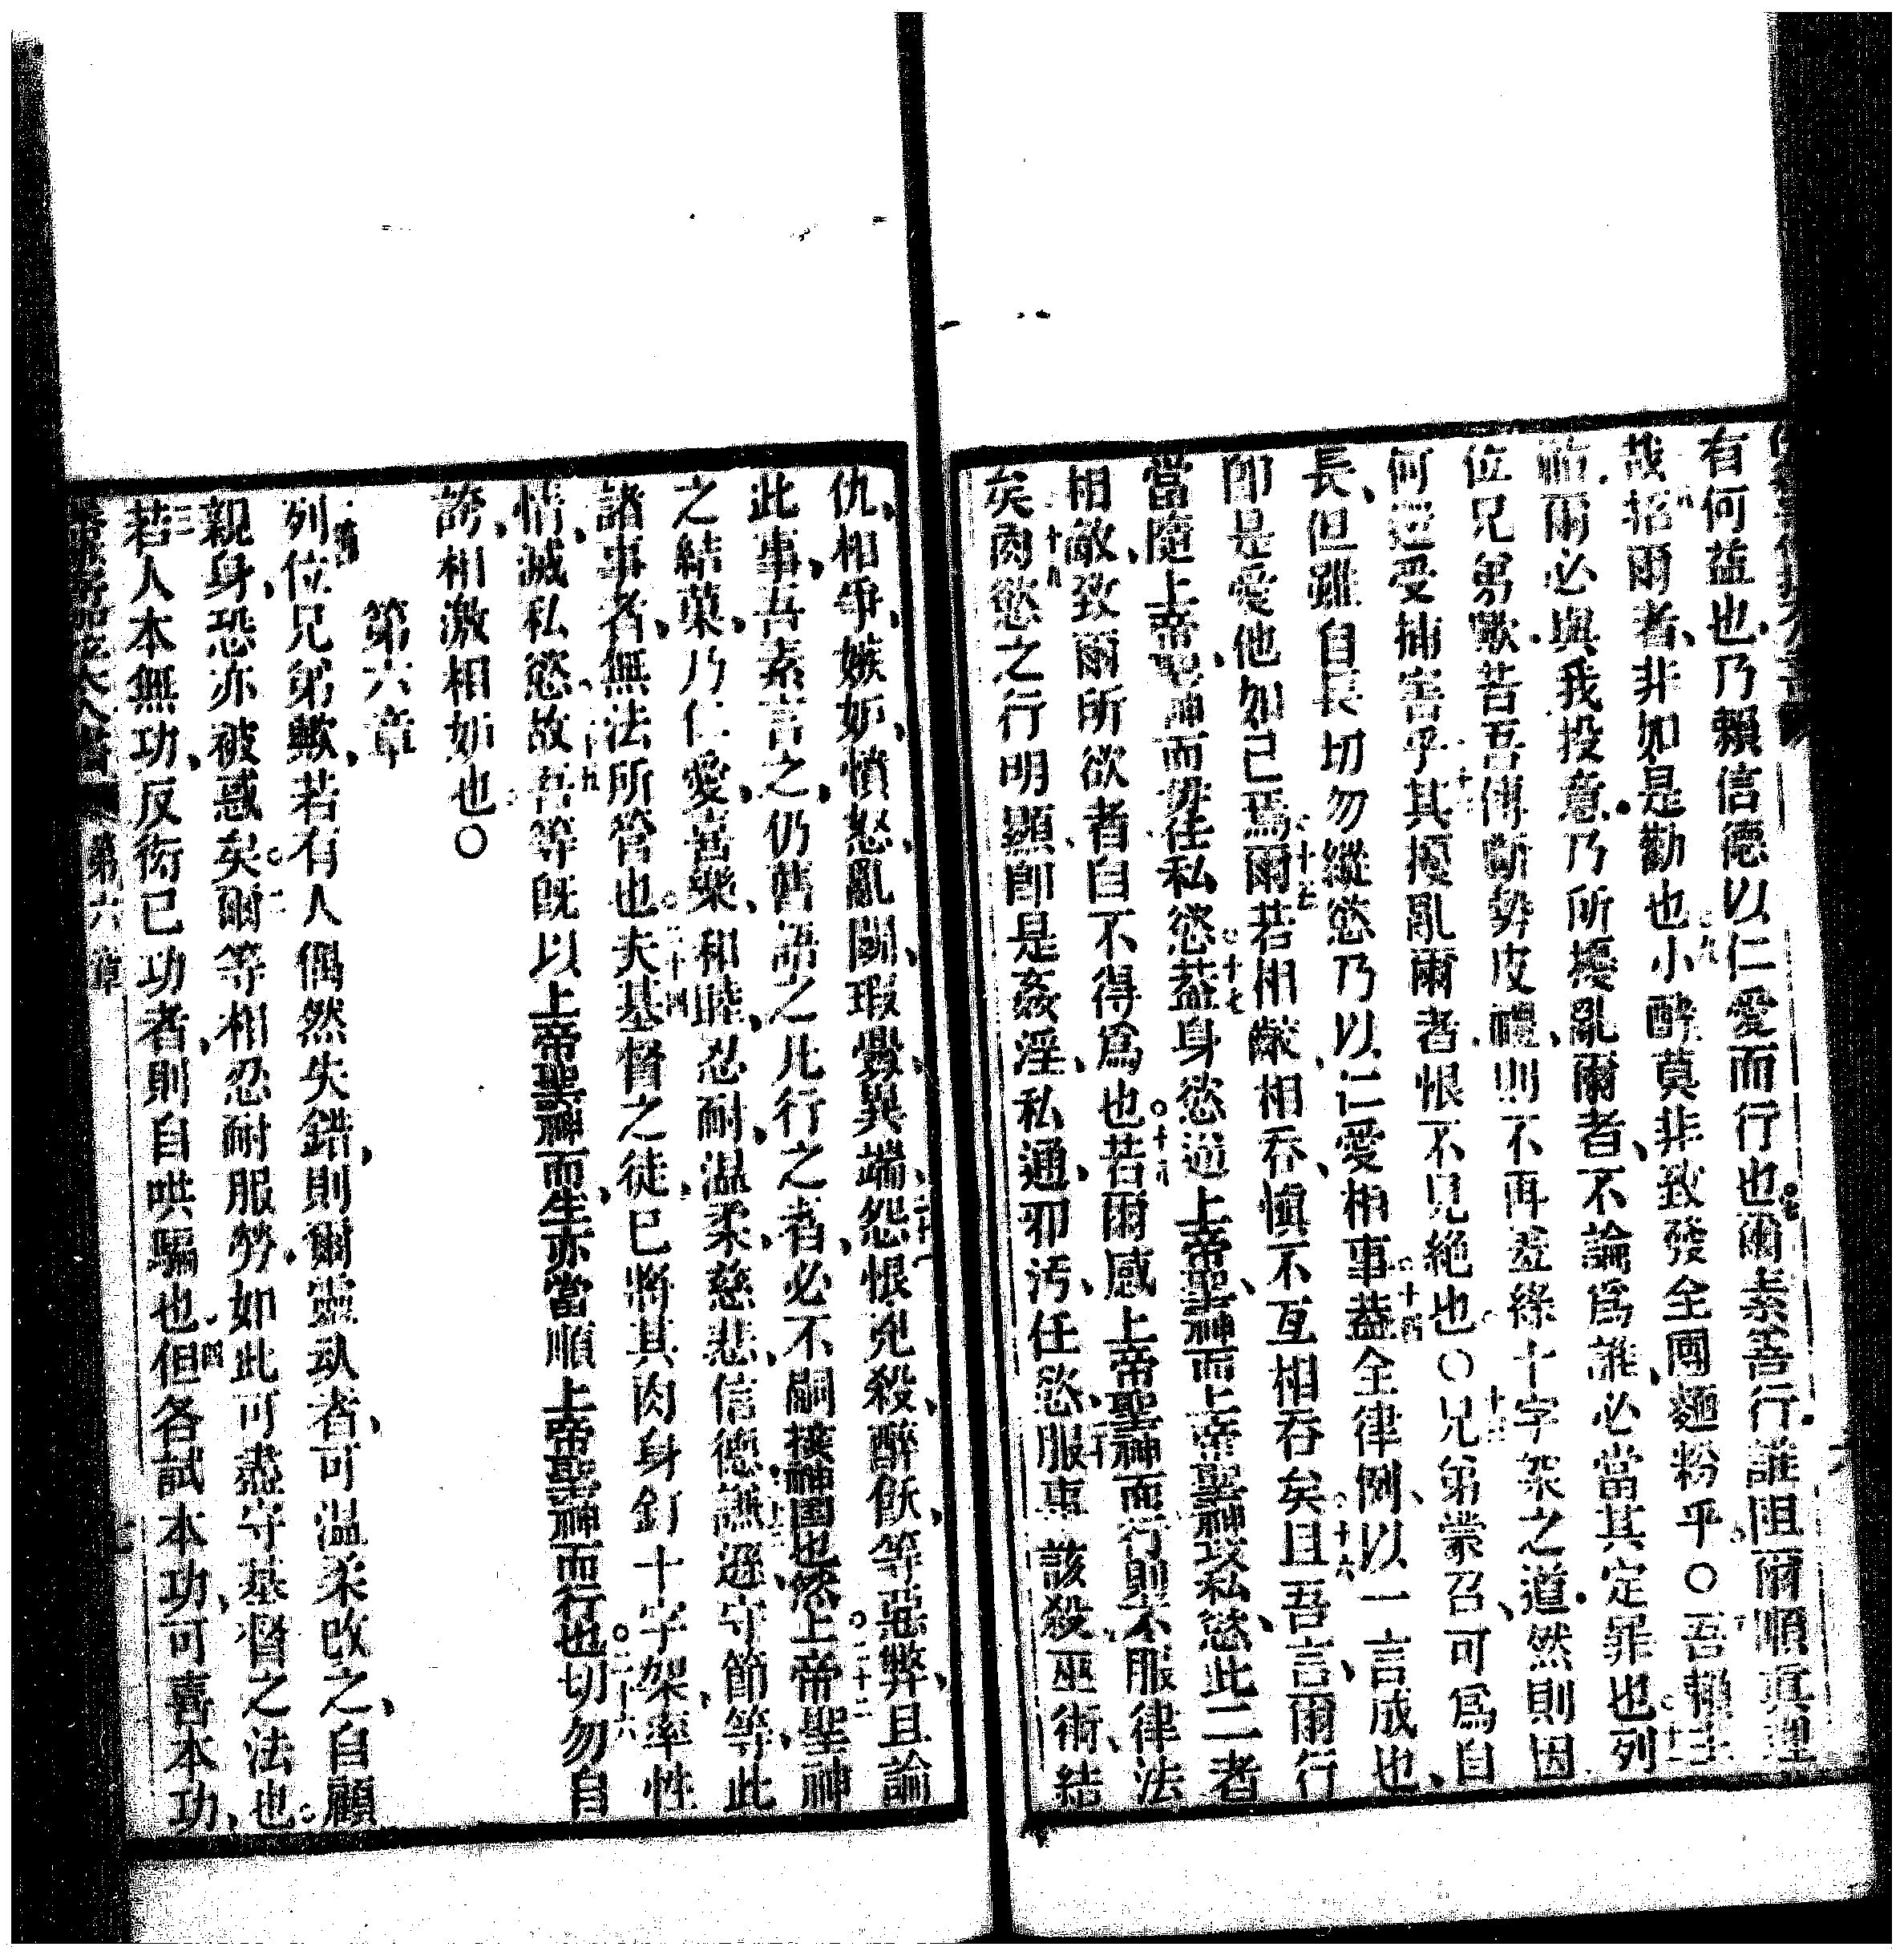 有何益也乃賴信德以仁愛而行也爾素善行誰阻爾順真理
哉招爾者非如是勸也小酵莫非致發全團麵粉乎〇吾賴主
祐爾必與我投意乃所擾亂爾者不論為誰必當其定罪也列
位兄弟歟若吾傳斷勢皮禮則不再羞緣十字架之道然則因
何逆受捕害乎其擾亂爾者恨不見絕也〇兄弟蒙召可為自
長但雖自長切勿縱慾乃以仁愛相事蓋全律例以一言成也
即是愛他如己焉爾若相齧相吞慎不互相吞矣且吾言爾行
當隨上帝聖神而毋任私慾蓋身慾逆上帝聖神而上帝聖神攻私慾此二者
相敵致爾所欲者自不得為也若爾感上帝聖神而行則不服律法
矣肉慾之行明顯即是姦淫私通邪污任慾服事該殺巫術結
仇相爭嫉妒憤怒亂鬭瑕釁異端怨恨兇殺醉飫等惡弊且論
此事吾素言之仍舊語之凡行之者必不嗣接神國也然上帝聖神
之結菓乃仁愛喜樂和睦忍耐溫柔慈悲信德謙遜守節等此
諸事者無法所管也夫基督之徒已將其肉身釘十字架率性
情滅私慾故吾等既以上帝聖神而生亦當順上帝聖神而行也切勿自
誇相激相妒也〇
第六章
列位兄弟歟若有人偶然失錯則爾靈臥者可溫柔改之自顧
親身恐亦被惑矣爾等相忍耐服勞如此可盡守基督之法也
若人本無功反衒己功者則自哄騙也但各試本功可喜本功
第六章